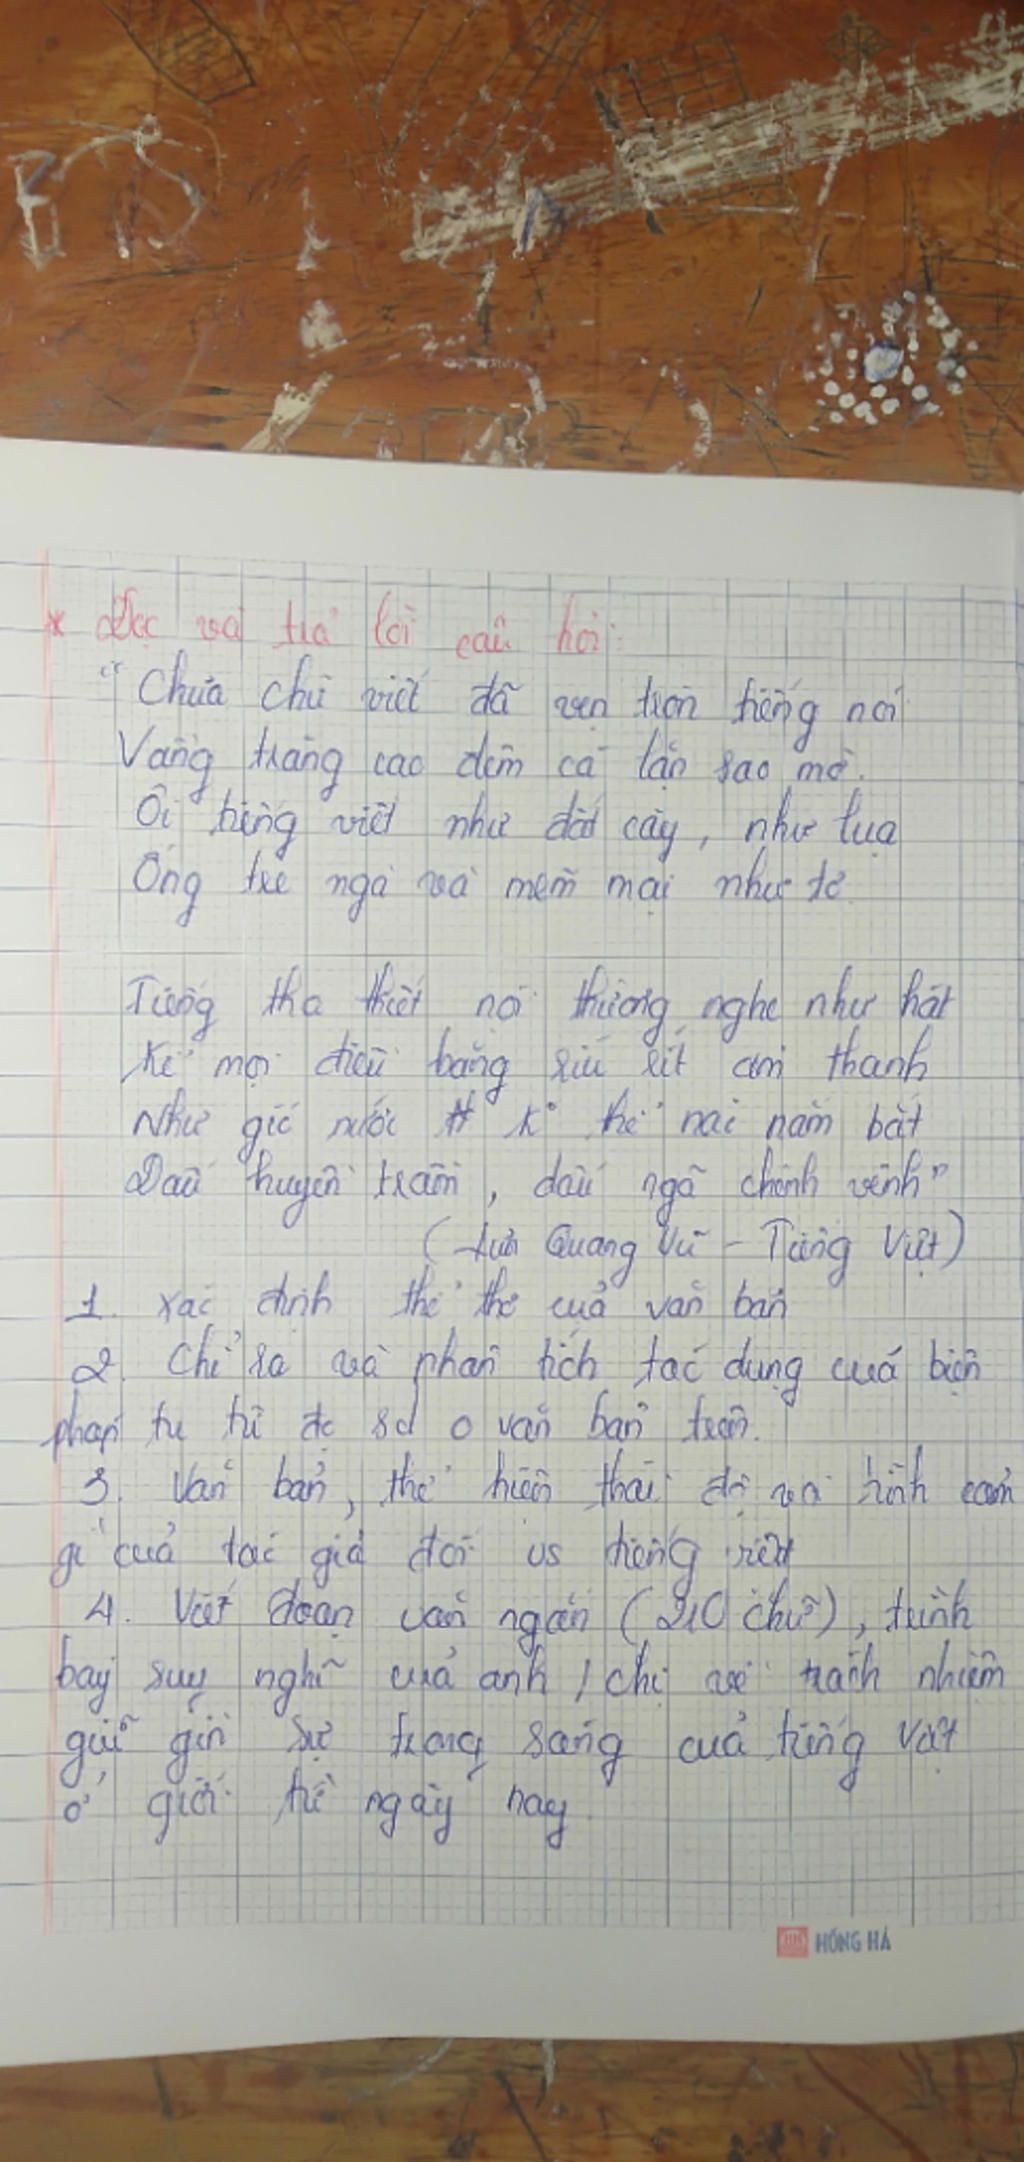 * Đọc và trả lời câu hỏi:
"Chưa chữ viết đã vẹn tròn tiếng nói
Vầng trăng cao đêm cá lặn sao mờ.
Ôi tiếng việt như đất cày, như lụa
Óng tre ngà và mềm mại như tơ
Tiếng tha thiết nói thường nghe như hát
Kể mọi điều bằng ríu rít âm thanh
Như gió nước k° thể nào nắm bắt
Dấu huyền trầm, dấu ngã chênh vênh"
(Lưu Quang Vũ - Tiếng Việt)
1. Xác định thể thơ của văn bản
2. Chỉ ra và phân tích tác dụng của biện
pháp tu từ đc sd ở văn bản trên.
3. Văn bản, thể hiện thái độ và tình cảm
gì của tác giả đối vs tiếng việt
4. Viết đoạn văn ngắn (210 chữ), trình
bày suy nghĩ của anh / chị về trách nhiệm
giữ gìn sự trong sáng của tiếng việt
ở giới trẻ ngày nay.
HỒNG HÀ